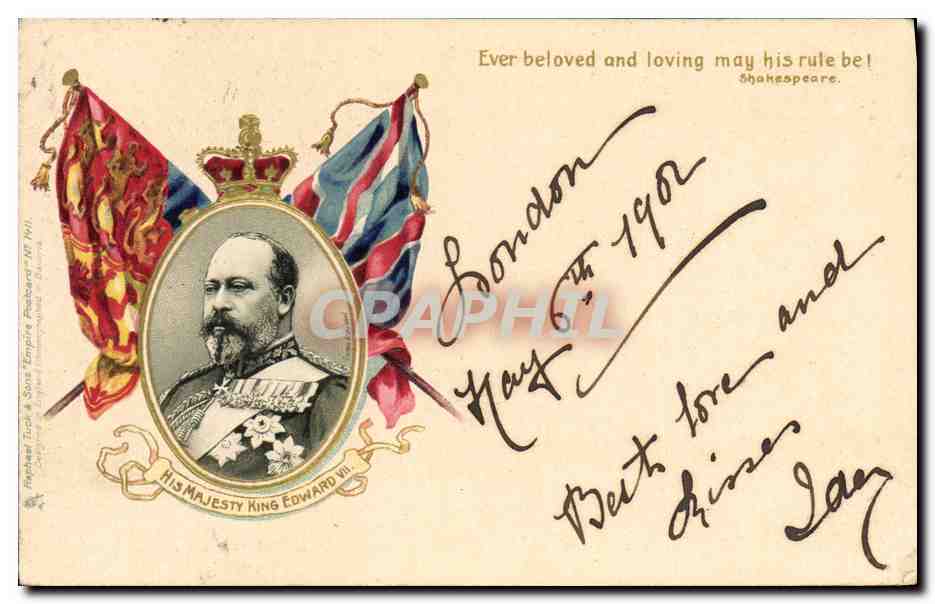 Ever beloved and loving may his rule be!
Shakespeare.
London
May 6th 1902
Best love and
kisses
Ida
HIS MAJESTY KING EDWARD VII.
Raphael Tuck & Sons "Empire Postcard" No 1411.
Designed in England Chromographed in Bavaria
CPAPHIL